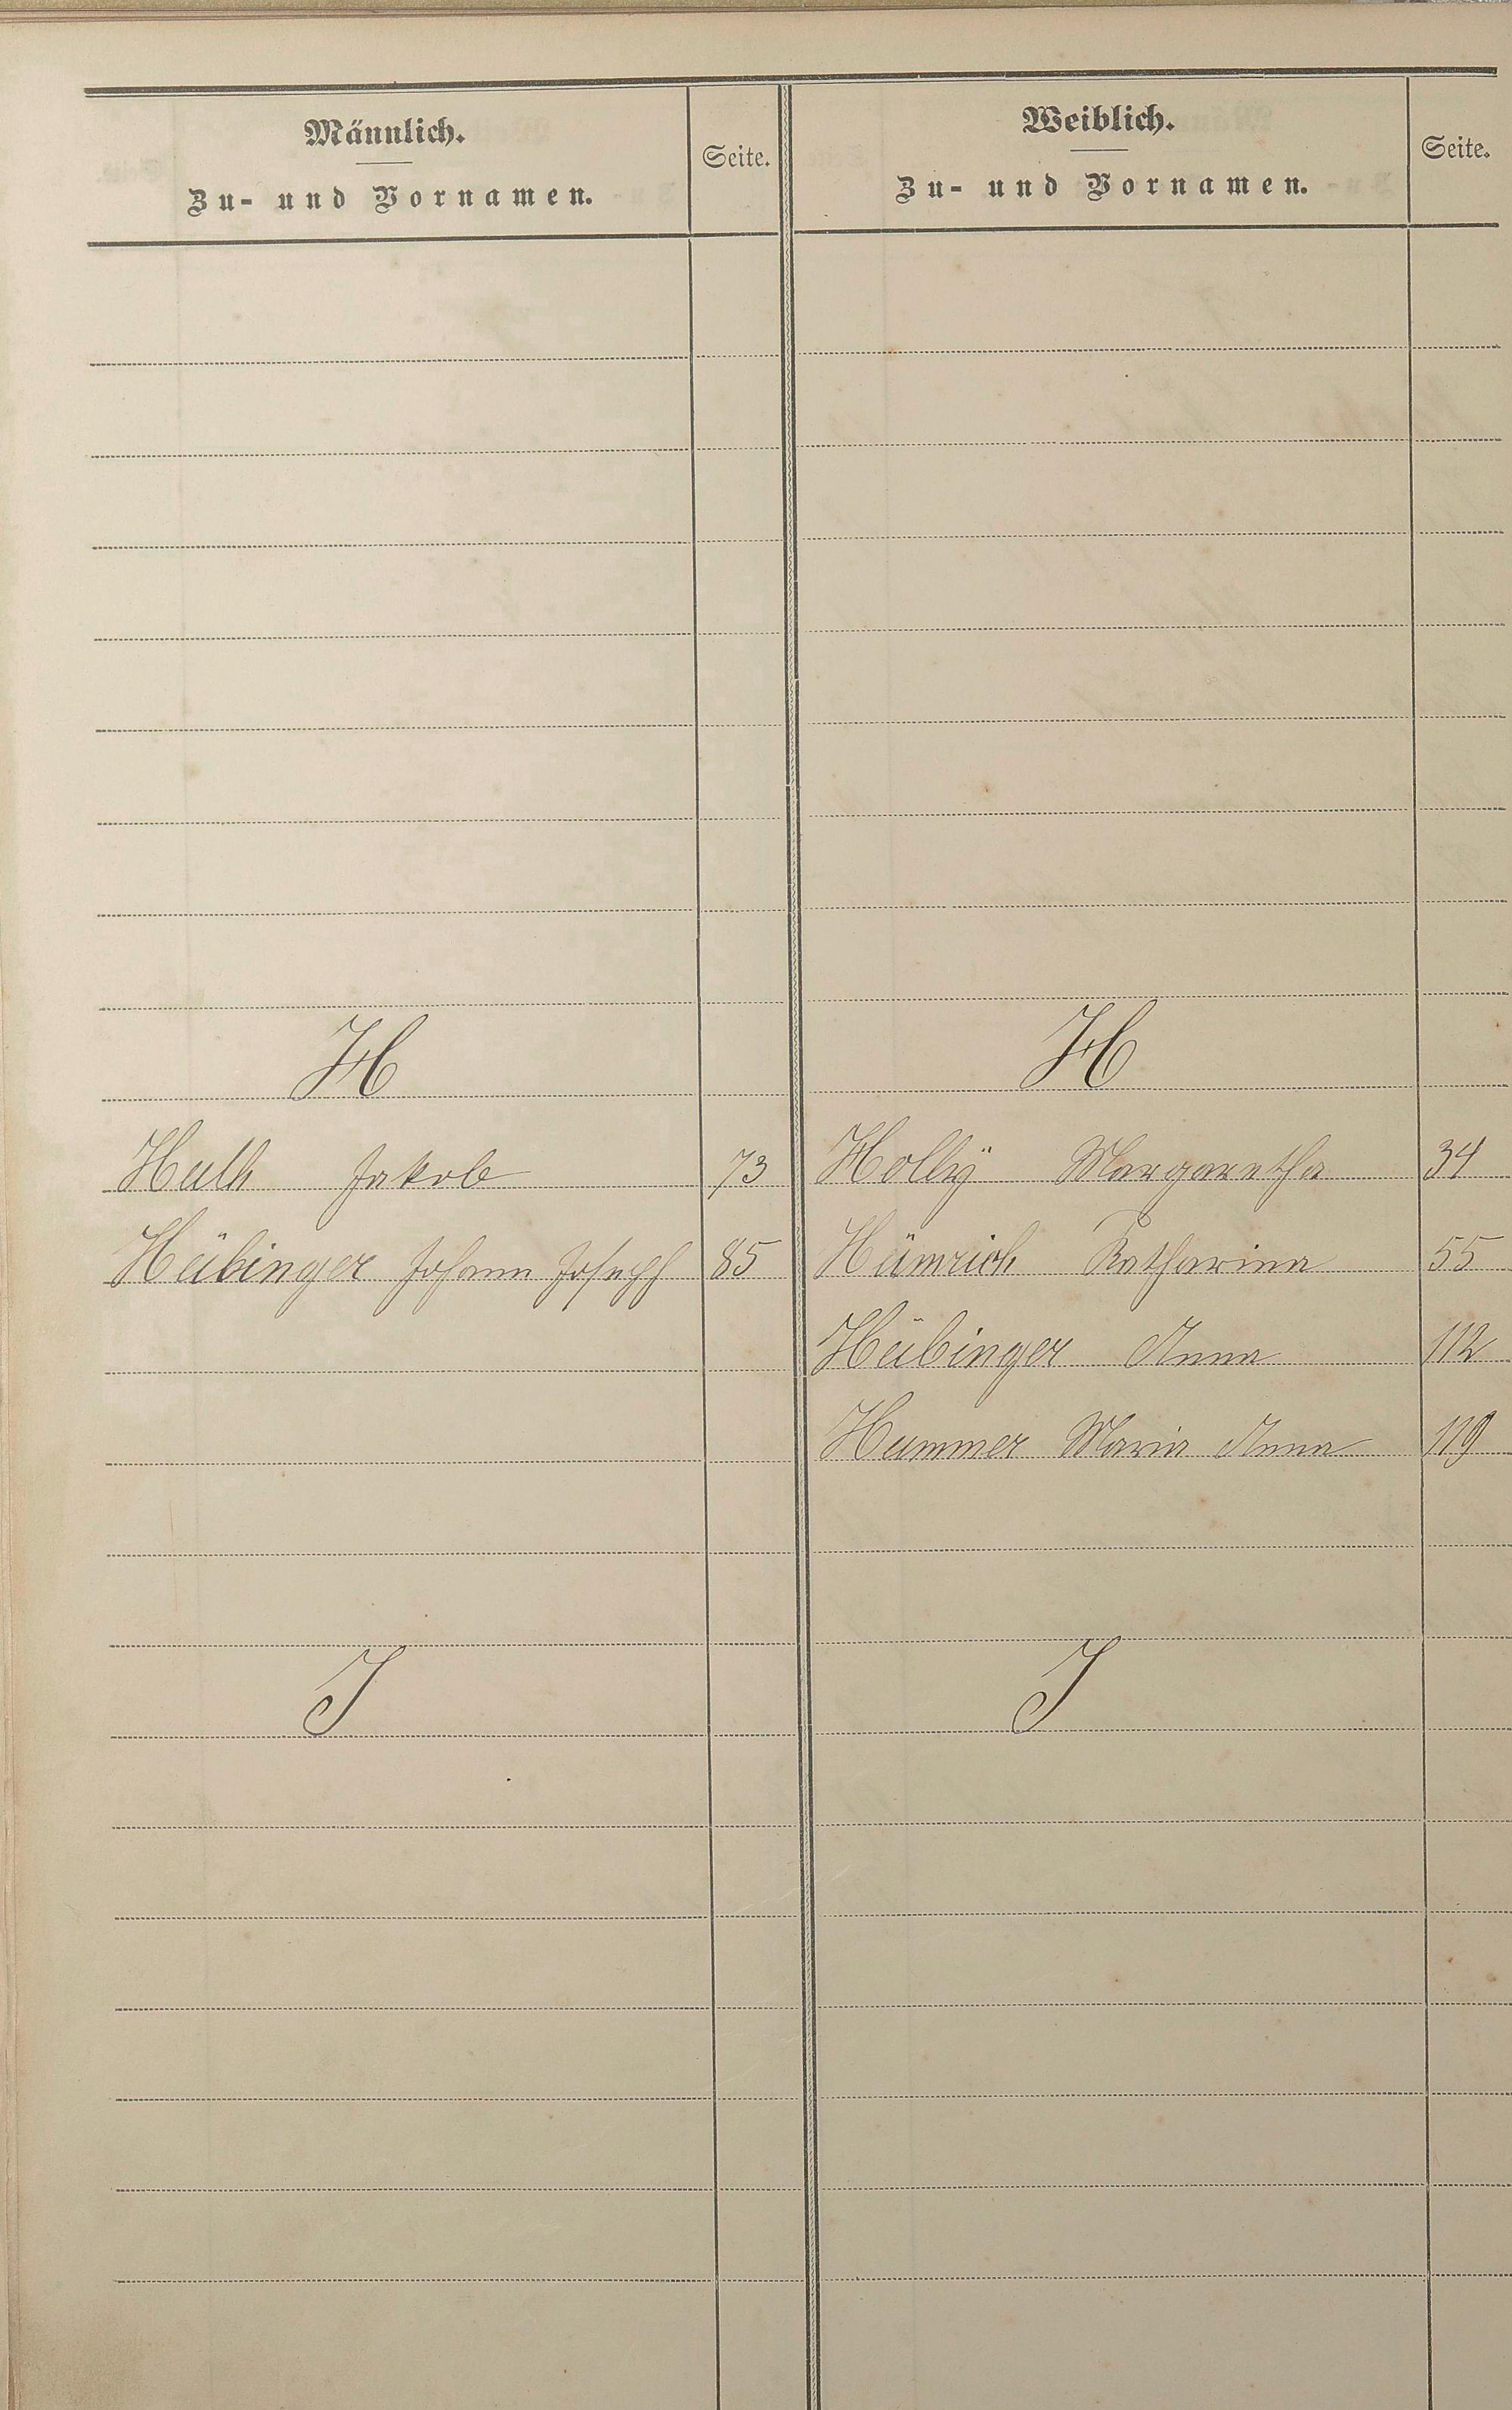 Männlich.
Zu- und Vornamen.
Seite.
Weiblich.
Zu- und Vornamen.
Seite.
H
H
Jakob 73
Holly Margaretha 34
Hübinger Johann Joseph 85
Hümrich Katharina 55
Hübinger Anna 112
Hummer Maria Anna 119
J
J